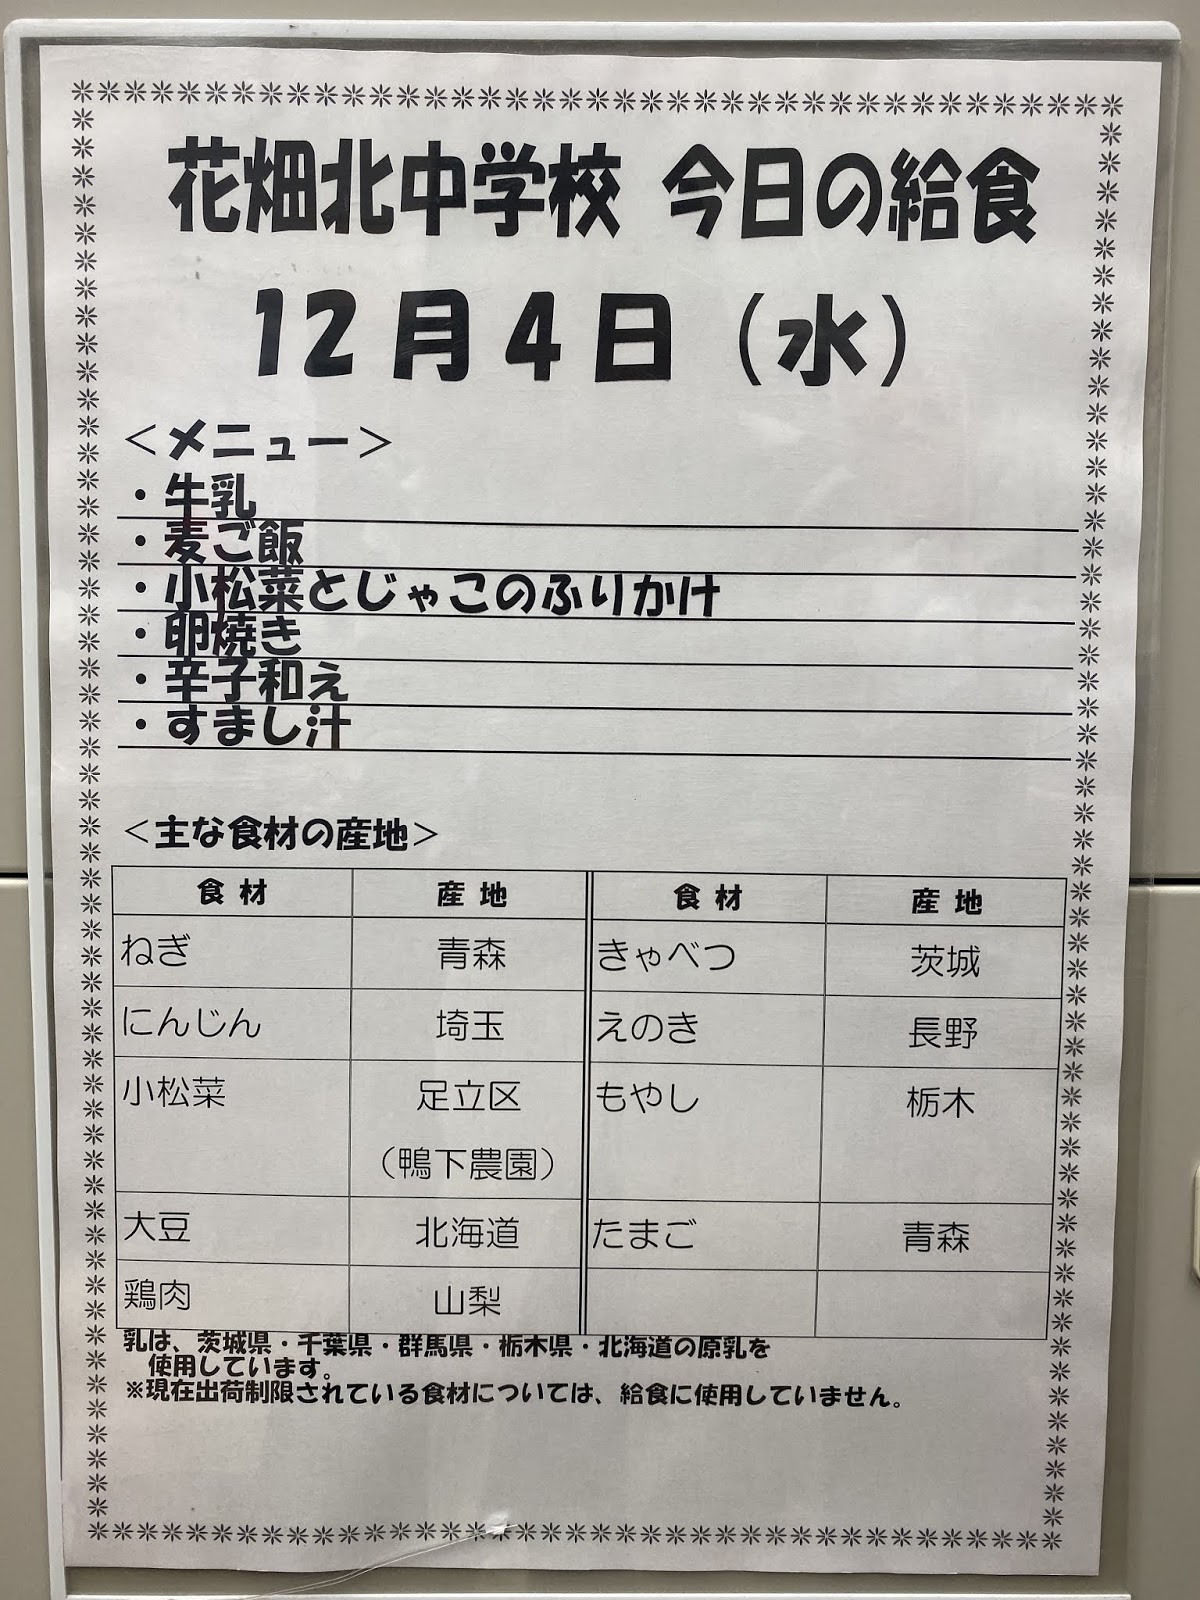 花畑北中学校 今日の給食
12月4日（水）
＜メニュー＞
・牛乳
・麦ご飯
・小松菜とじゃこのふりかけ
・卵焼き
・辛子和え
・すまし汁
＜主な食材の産地＞
食材 産地 食材 産地
ねぎ 青森 きゃべつ 茨城
にんじん 埼玉 えのき 長野
小松菜 足立区 もやし 栃木
（鴨下農園）
大豆 北海道 たまご 青森
鶏肉 山梨
乳は、茨城県・千葉県・群馬県・栃木県・北海道の原乳を
使用しています。
※現在出荷制限されている食材については、給食に使用していません。